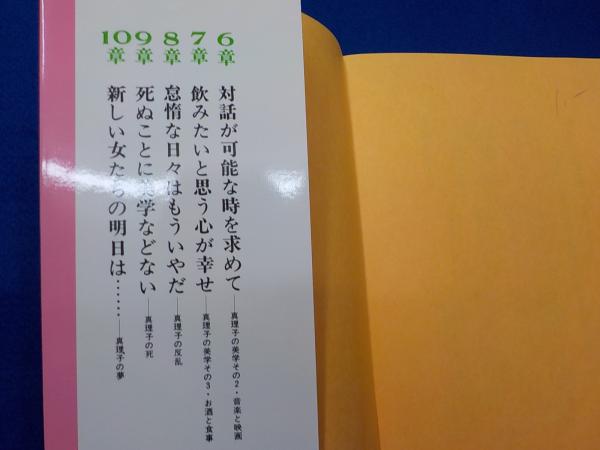 6章 対話が可能な時を求めて――真理子の美学その2・音楽と映画
7章 飲みたいと思う心が幸せ――真理子の美学その3・お酒と食事
8章 怠惰な日々はもういやだ――真理子の反乱
9章 死ぬことに美学などない――真理子の死
10章 新しい女たちの明日は……――真理子の夢